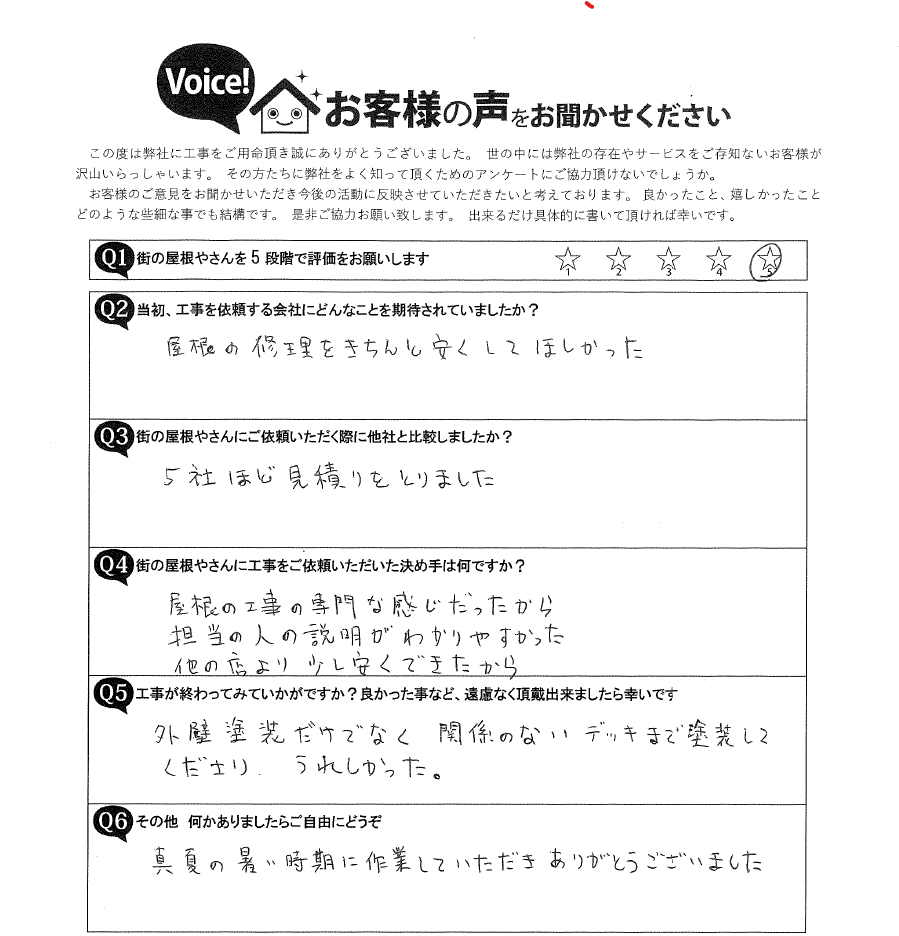 Voice! お客様の声をお聞かせください
この度は弊社に工事をご用命頂き誠にありがとうございました。 世の中には弊社の存在やサービスをご存知ないお客様が
沢山いらっしゃいます。 その方たちに弊社をよく知って頂くためのアンケートにご協力頂けないでしょうか。
お客様のご意見をお聞かせいただき今後の活動に反映させていただきたいと考えております。 良かったこと、嬉しかったこと
どのような些細な事でも結構です。 是非ご協力お願い致します。 出来るだけ具体的に書いて頂ければ幸いです。
Q1 街の屋根やさんを 5 段階で評価をお願いします ☆1 ☆2 ☆3 ☆4 ☆5
Q2 当初、工事を依頼する会社にどんなことを期待されていましたか？
屋根の修理をきちんと安くしてほしかった
Q3 街の屋根やさんにご依頼いただく際に他社と比較しましたか？
5社ほど見積りをとりました
Q4 街の屋根やさんに工事をご依頼いただいた決め手は何ですか？
屋根の工事の専門な感じだったから
担当の人の説明がわかりやすかった
他の店より少し安くできたから
Q5 工事が終わってみていかがですか？良かった事など、遠慮なく頂戴出来ましたら幸いです
外壁塗装だけでなく 関係のないデッキまで塗装して
くださり、うれしかった。
Q6 その他 何かありましたらご自由にどうぞ
真夏の暑い時期に作業していただきありがとうございました